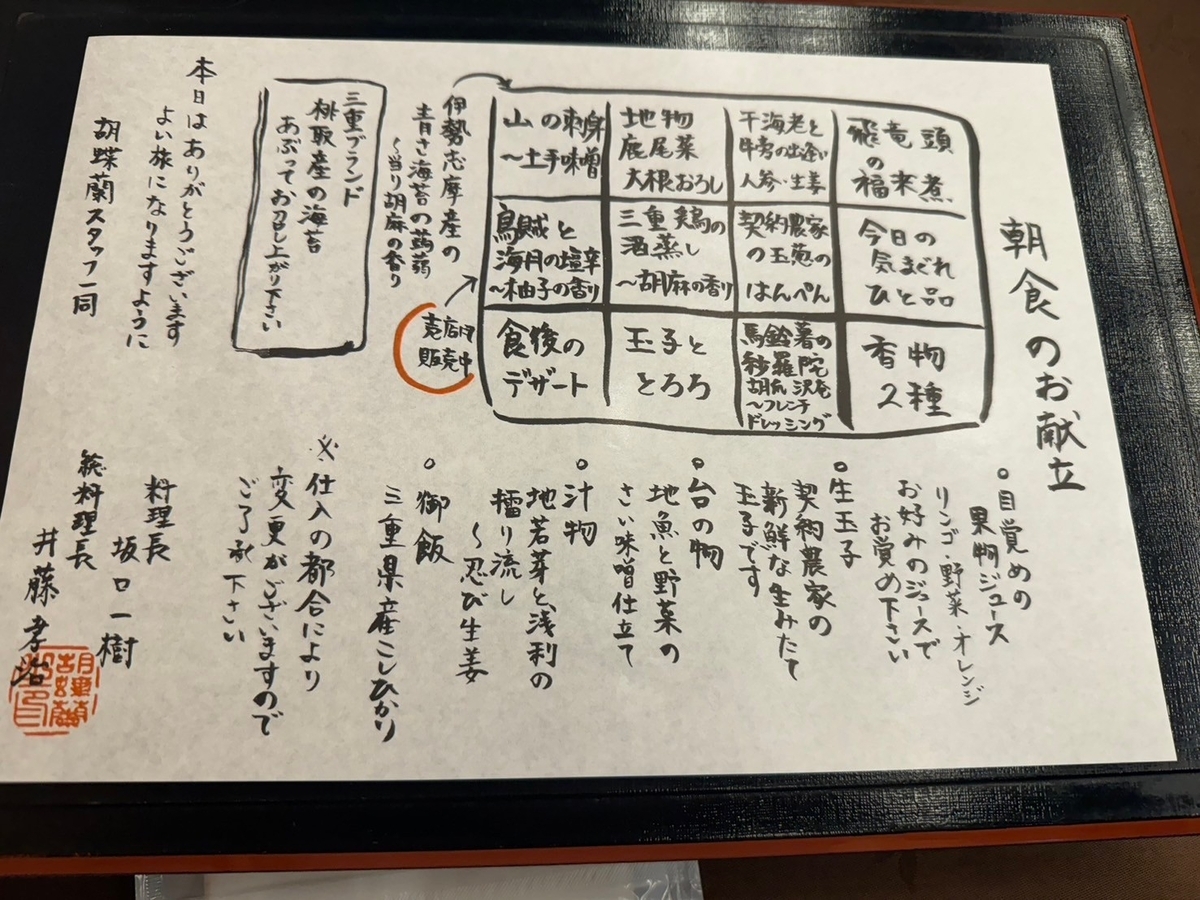 朝食のお献立
飛竜頭
の
福来煮
干海老と
牛蒡の出逢い
人参・生姜
地物
鹿尾菜
大根おろし
山の刺身
〜土手味噌
今日の
気まぐれ
ひと品
契約農家
の玉葱の
はんぺん
三重鶏の
酒蒸し
〜胡麻の香り
烏賊と
海月の塩辛
〜柚子の香り
香物
2種
馬鈴薯の
紗羅陀
胡瓜 沢庵
〜フレンチ
ドレッシング
玉子と
とろろ
食後の
デザート
伊勢志摩産の
青さ海苔の蒟蒻
〜当り胡麻の香り
売店用
販売中
三重ブランド
桃取産の海苔
あぶってお召し上がり下さい
本日はありがとうございます
よい旅になりますように
胡蝶蘭スタッフ一同
○目覚めの
果物ジュース
リンゴ・野菜・オレンジ
お好みのジュースで
お覚め下さい
○生玉子
契約農家の
新鮮な生みたて
玉子です
○台の物
地魚と野菜の
さい味噌仕立て
○汁物
地若芽と浅利の
擂り流し
〜忍び生姜
○御飯
三重県産こしひかり
※仕入の都合により
変更がございますので
ご了承下さい
料理長
坂口一樹
総料理長
井藤孝治